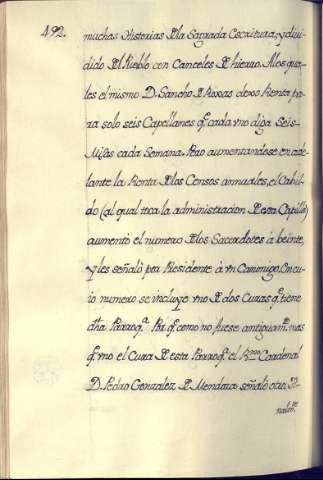 492.
muchas Historias Dla Sagrada Escritura, y divi-
dido Dl Pueblo con Canceles D hierro. A los qua-
les el mismo D. Sancho D Roxas dexo Renta pa-
ra solo seis Capellanes q̃ cada vno diga Seis
Misas cada Semana. Pero aumentandose en ade-
lante la Renta Dlos Censos annuales, el Cabil-
do (al qual toca la administracion D esta Capilla)
aumentò el numero Dlos Sacerdotes à beinte,
y les señalò por Presidente à vn Canonigo. En cu-
io numero se incluye vno D dos Curas q̃ tiene
dha Parroq.ª Por q̃ como no fuese antiguam.te mas
q̃ vno el Cura D esta Parroq.ª el R.mo Cardenal
D. Pedro Gonzalez D Mendoza señalò otro.